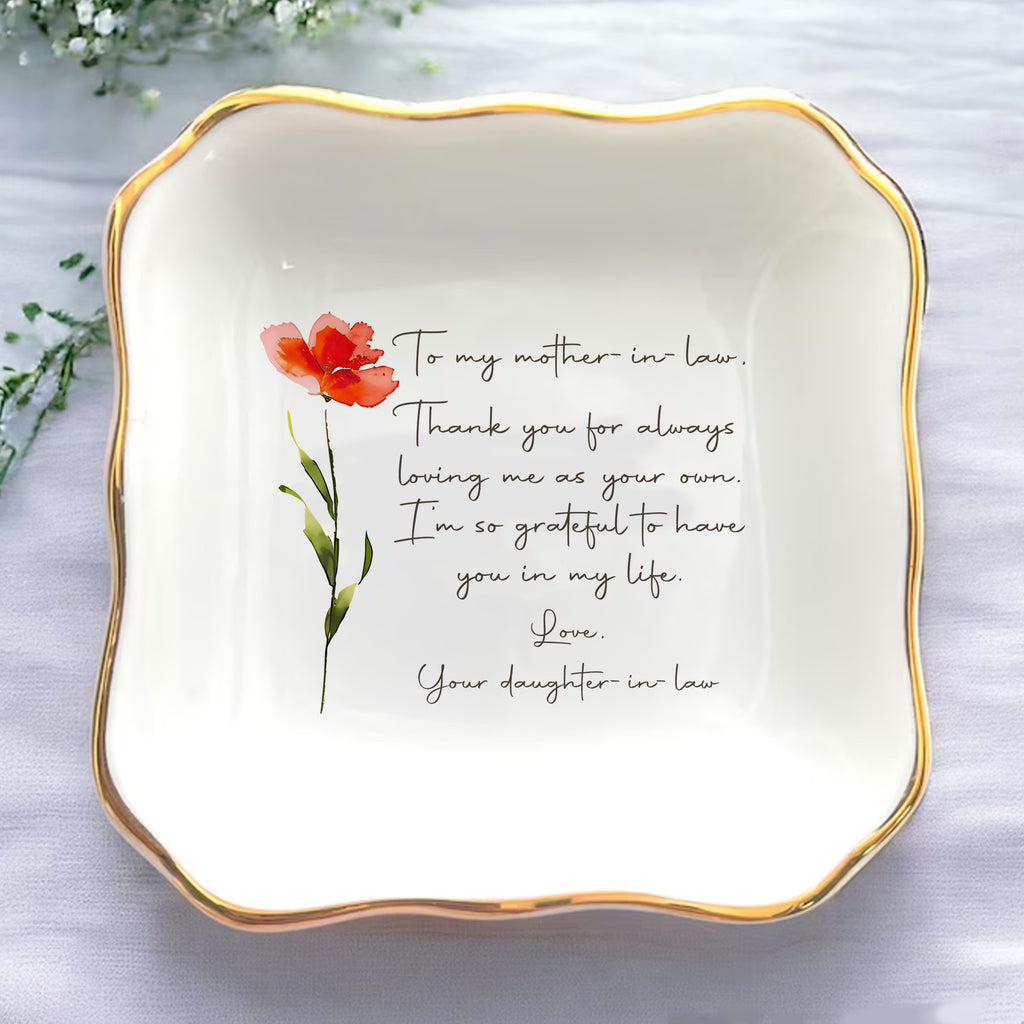 To my mother-in-law.
Thank you for always
loving me as your own.
I'm so grateful to have
you in my life.
Love.
Your daughter-in-law